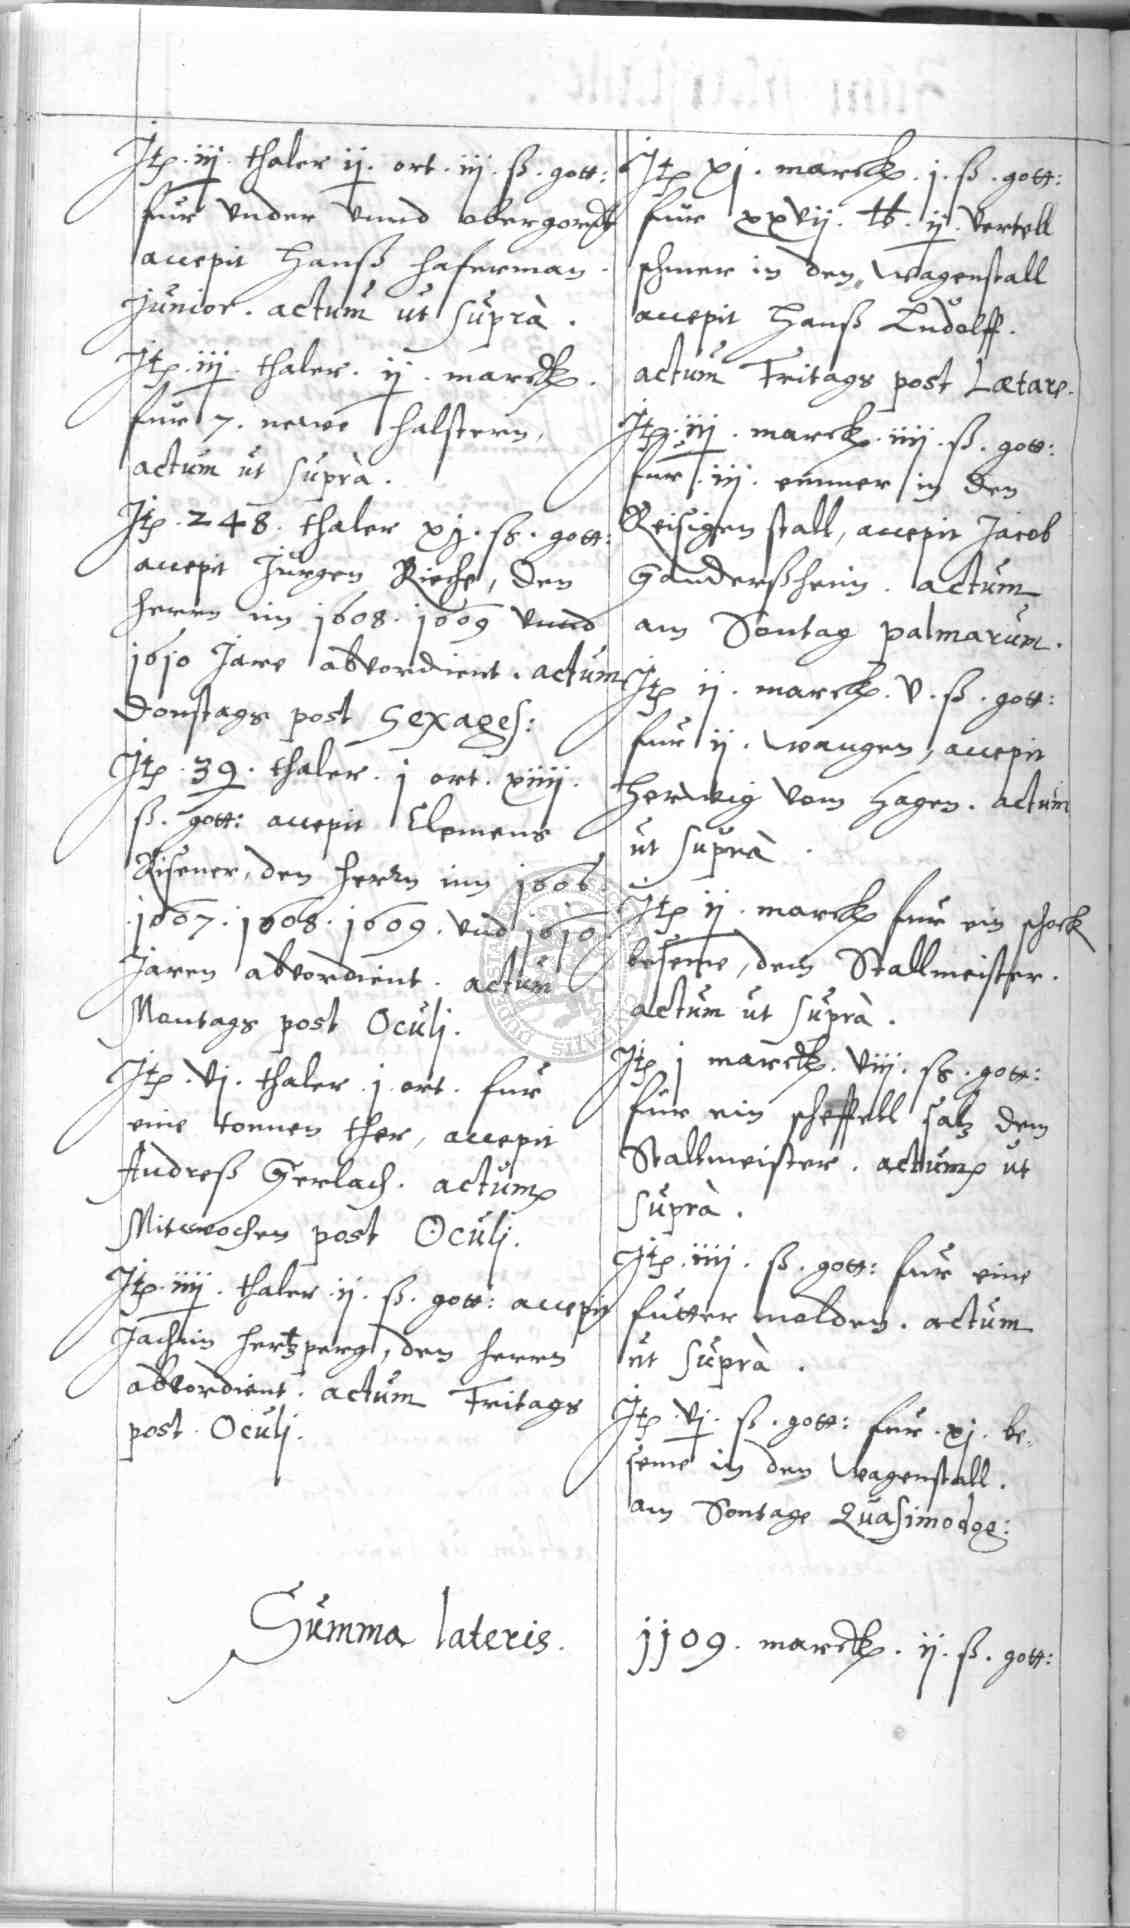 Jtp. iij. thaler ij. ort. iij. ß. gott:
fur vnder vnnd obergordt
accepit Hanß Haferman
Junior. actum ut suprà.
Jtp. iij. thaler. ij. marck.
fur 7. newe halstern,
actum ut suprà.
Jtp. 248. thaler xj. ß. gott:
accepit Jurgen Rieche, den
herrn im 1608. 1609 vnnd
1610 Jare abvordient. actum
Donstags post Sexages:
Jtp. 39. thaler. j ort. xiiij.
ß. gott: accepit Clemens
Risener, den herrn inn 1606.
1607. 1608. 1609. vnd 1610
Jaren abvordient. actum
Montags post Oculj.
Jtp. vj. thaler. j. ort. fur
eine tonnen ther, accepit
Andreß Gerlach. actum
Mitwochen post Oculj.
Jtp. iiij. thaler. ij. ß. gott: accepit
Jachim hertzperg, den herrn
abvordient. actum Fritags
post Oculj.
Summa lateris.
Jtp xj. marck. j. ß. gott:
fur xxvij. lb. ij. vertell
schmer in den wagenstall
accepit Hanß Ludolff.
actum Fritags post Lætare.
Jtp. iij. marck. iiij. ß. gott:
fur. iij. emmer in den
Reisigen stall, accepit Jacob
Ganderßheim. actum
am Sontag palmarum.
Jtp ij. marck. v. ß. gott:
fur ij. wannen, accepit
Herwig vom Hagen. actum
ut suprà.
Jtp ij. marck fur ein schock
beseme, dem Stallmeister.
actum ut suprà.
Jtp j marck. viij. ß. gott:
fur ein scheffell saltz dem
Stallmeister. actum ut
suprà.
Jtp. iiij. ß. gott: fur eine
futter molden. actum
ut suprà.
Jtp. vj. ß. gott: fur. xj. be-
seme in den wagenstall.
am Sontage Quasimodog:
1109. marck. ij. ß. gott: